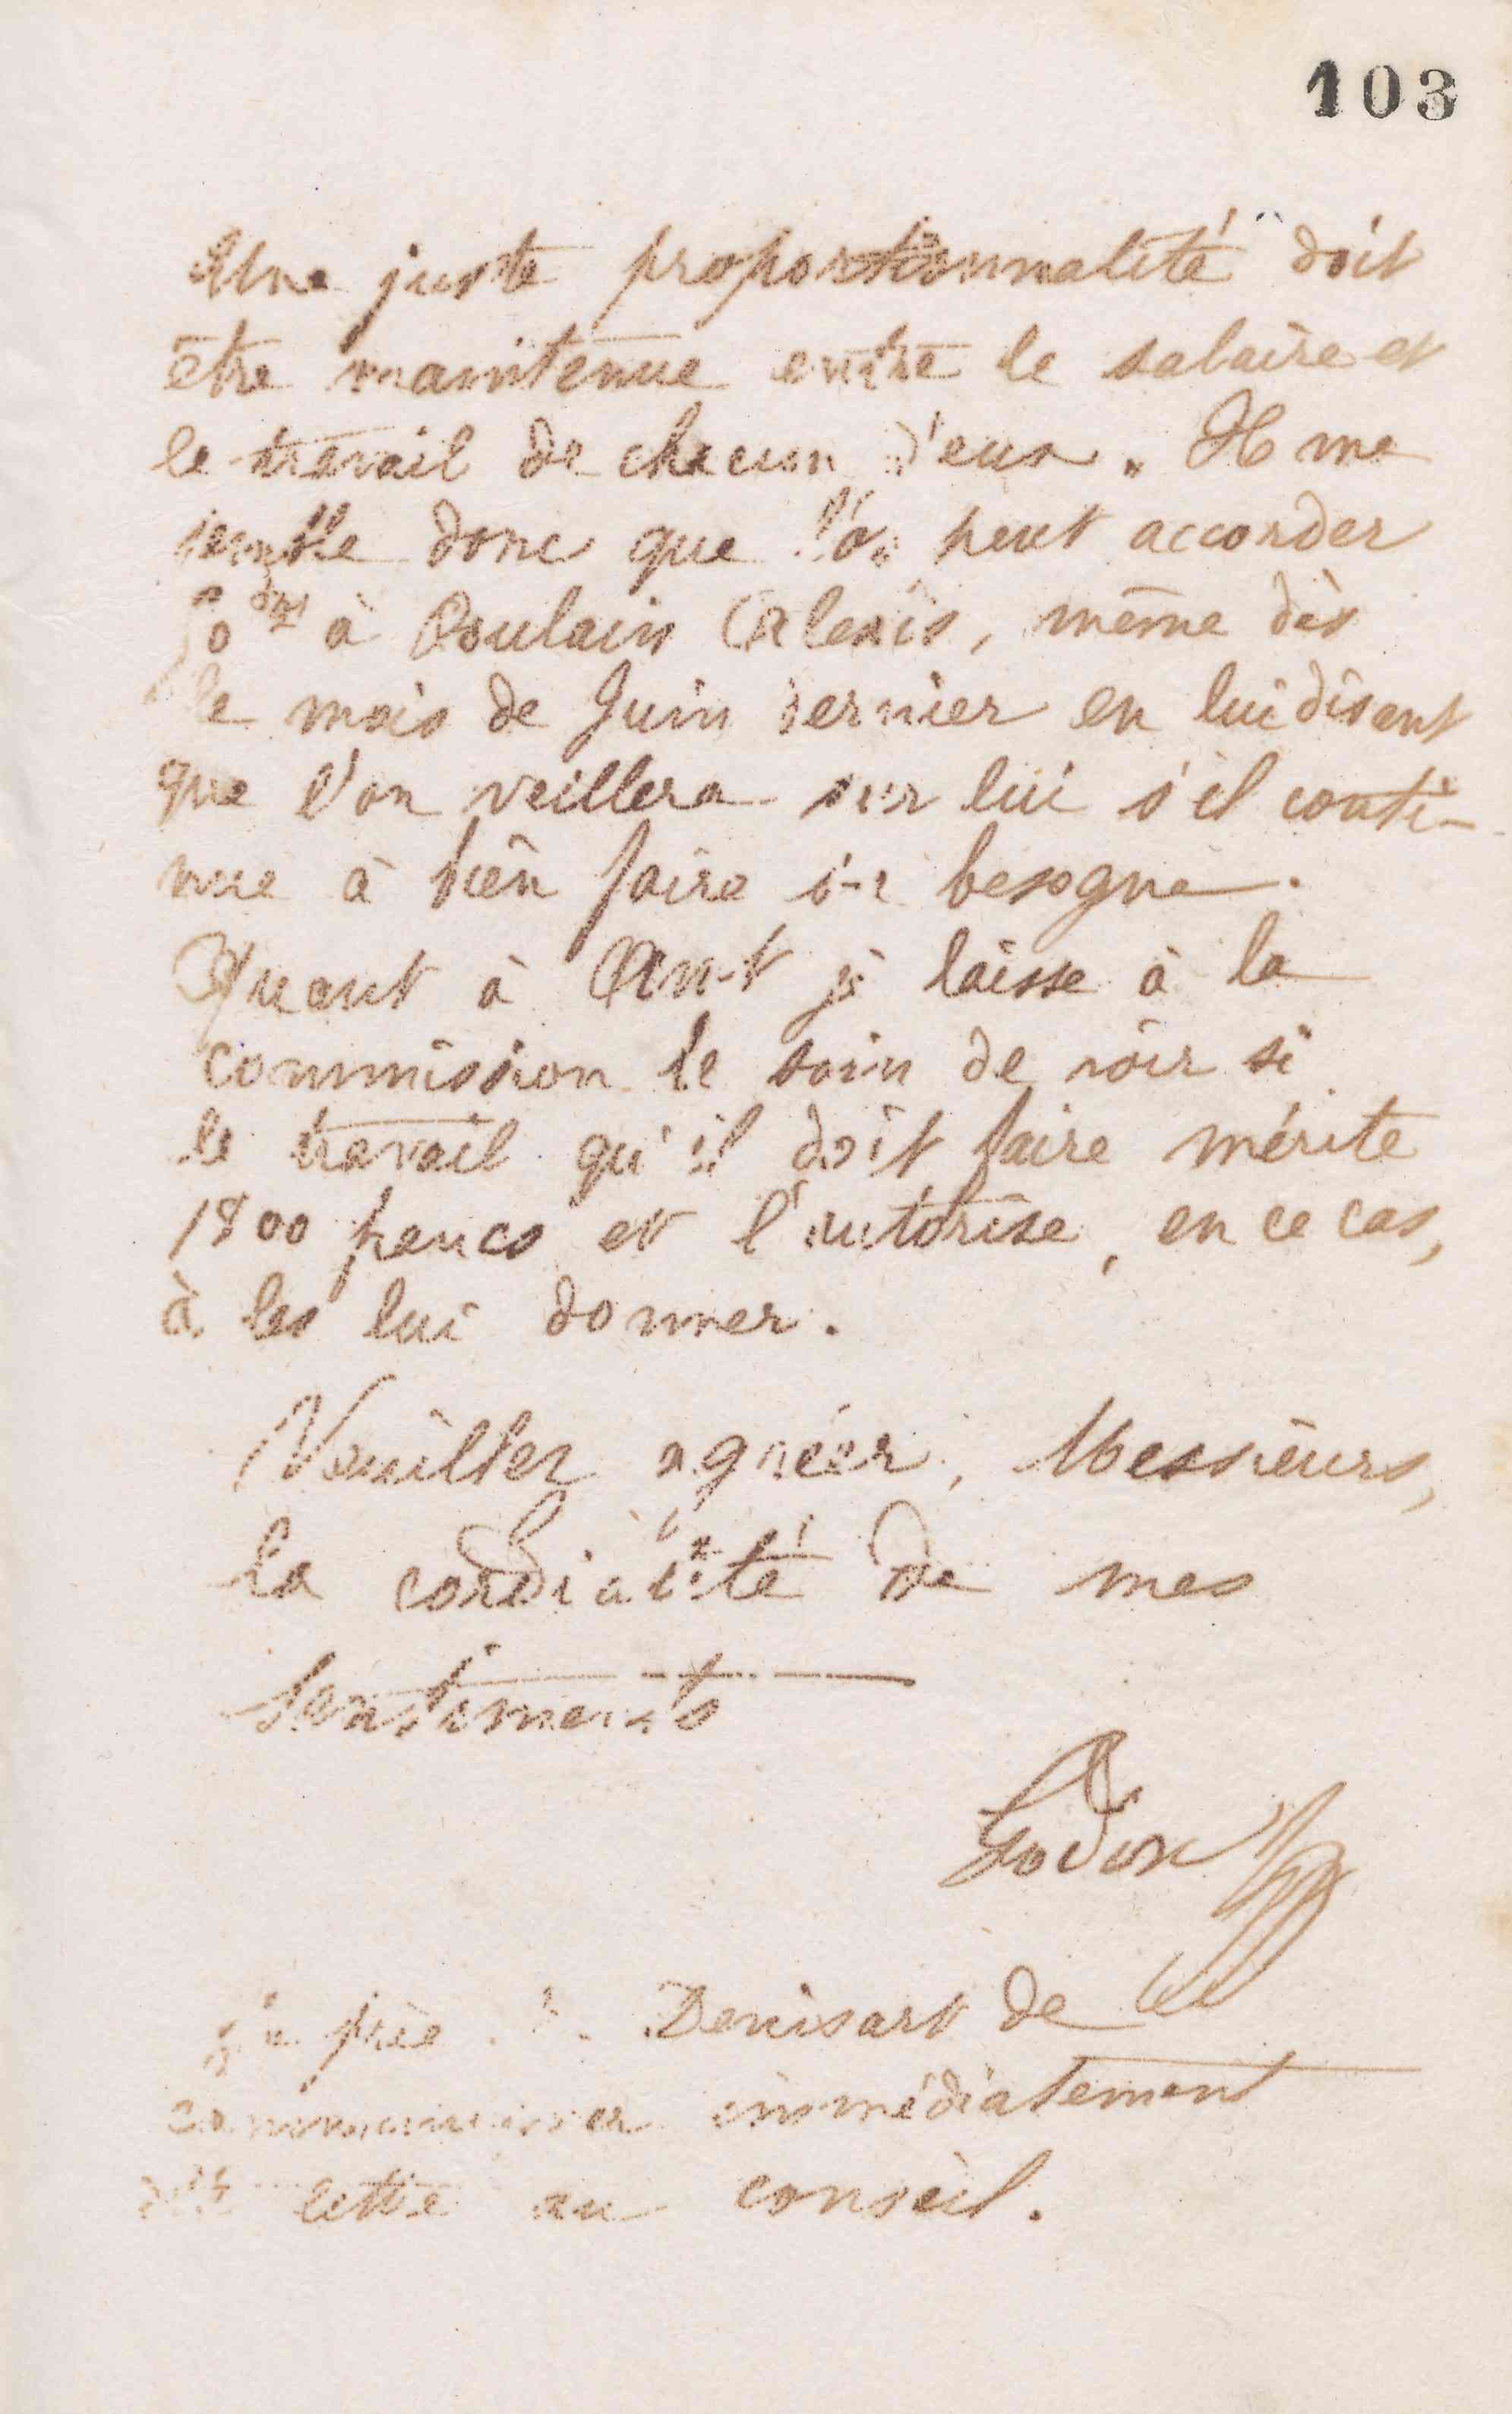 103
Une juste proportionnalité doit
être maintenue entre le salaire et
le travail de chacun d'eux. Il me
semble donc que l'on peut accorder
à Poulain Alexis, même dès
le mois de Juin dernier en lui disant
que l'on veillera sur lui s'il conti-
nue à bien faire sa besogne.
Quant à je laisse à la
commission le soin de voir si
le travail qu'il doit faire mérite
1800 francs et l'autorise, en ce cas,
à les lui donner.
Veuillez agréer, Messieurs,
la cordialité de mes
sentiments
Godin
Je prie Denisart de
communiquer immédiatement
lettre au conseil.